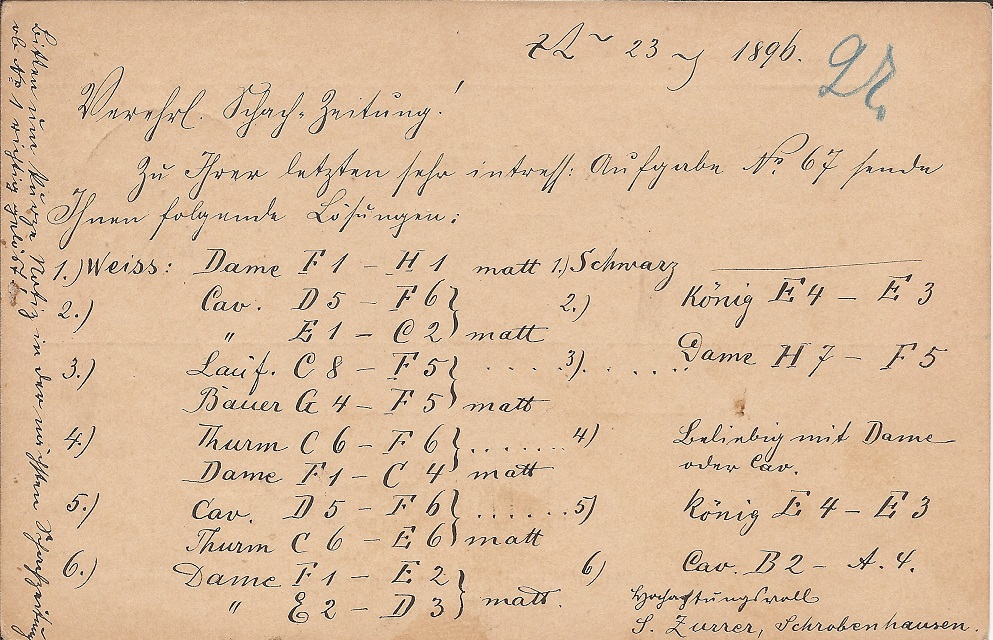 23 1896.
27.
Verehrl. Schach-Zeitung!
Zu Ihrer letzten sehr intress: Aufgabe No. 67 sende
Ihnen folgende Lösungen:
1.) Weiss: Dame F 1 – H 1 matt 1.) Schwarz
2.) Cav. D 5 – F 6 } 2.) König E 4 – E 3
" E 1 – C 2 } matt
3.) Läuf. C 8 – F 5 } ..... 3). ...... Dame H 7 – F 5
Bauer G 4 – F 5 } matt
4.) Thurm C 6 – F 6 } ....... 4) Beliebig mit Dame
Dame F 1 – C 4 } matt oder Cav.
5.) Cav. D 5 – F 6 } ...... 5) König E 4 – E 3
Thurm C 6 – E 6 } matt
6.) Dame F 1 – E 2 } 6) Cav. B 2 – A. 4.
" E 2 – D 3 } matt.
Hochachtungsvoll
S. Zurrer, Schrobenhausen.
Bitten um kurze Notiz in der nächsten Schachzeitung
ob No 1 richtig gelöst!